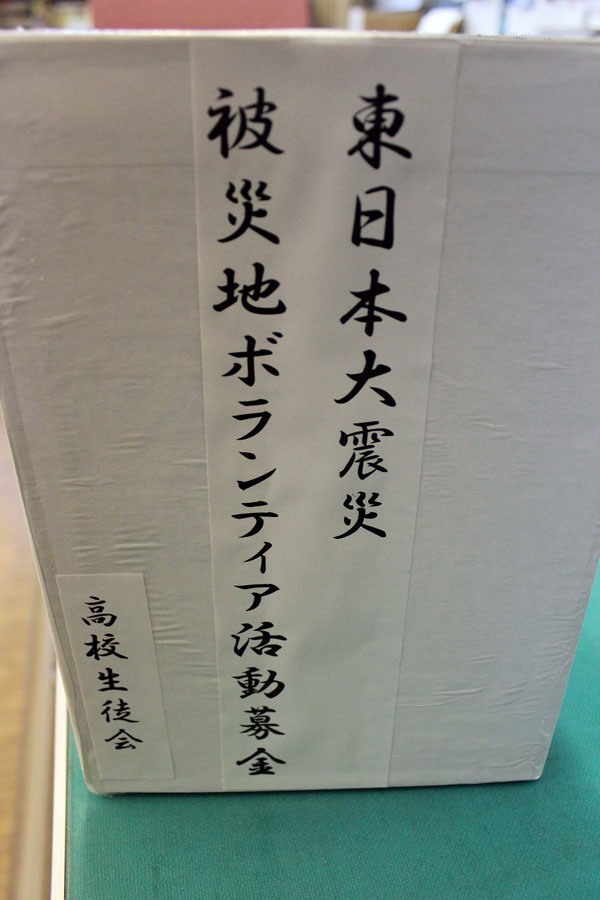 東日本大震災
被災地ボランティア活動募金
高校生徒会